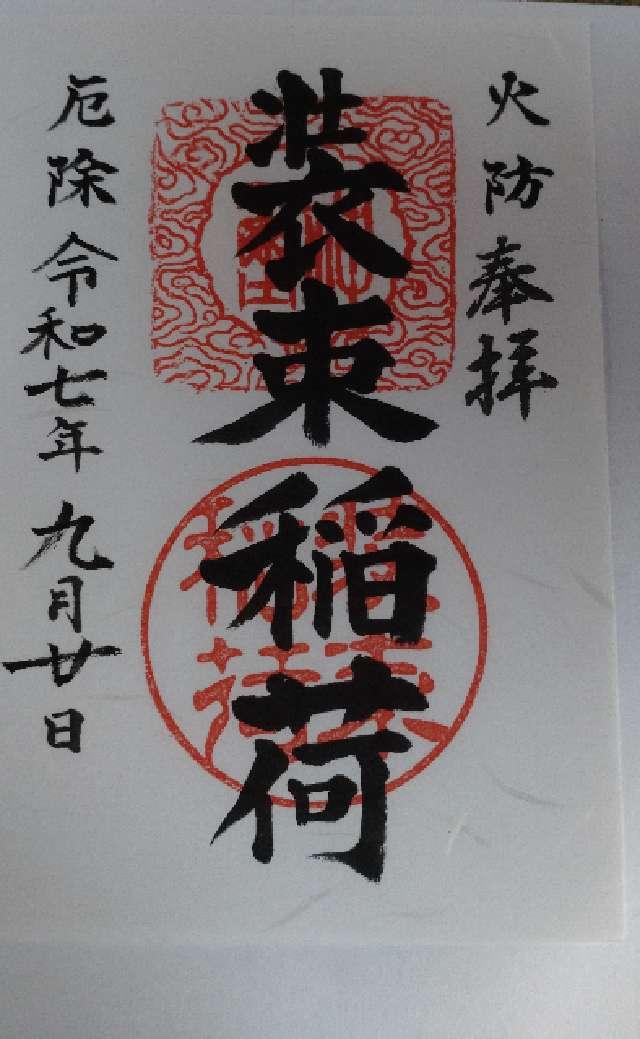 火防奉拝
装束稲荷
厄除令和七年九月廿日